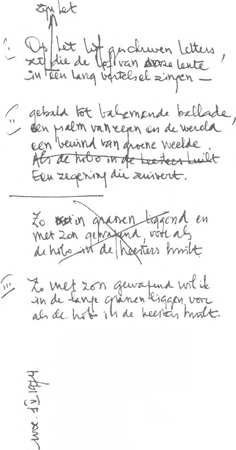 zijn het
I Op het lijf geschreven letters,
zal die de lof van onze lente
in een lang vertelsel zingen —
II gebald tot balsemende ballade,
een psalm van zegen en de wereld
een bewind van groene weelde.
Als de hobo in de heesters huilt
Een zegening die zuivert.
Zo in granen liggend en
met zon gewapend, voor als
de hobo in de heesters huilt
III Zo met zon gewapend wil ik
in de lange granen liggen voor
als de hobo in de heesters huilt.